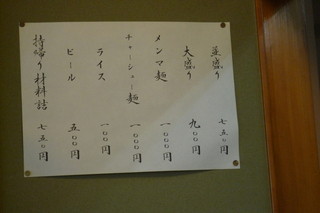 並盛り 七五〇円
大盛り 九〇〇円
メンマ麺 一〇〇〇円
チャーシュー麺 一〇〇〇円
ライス 一〇〇円
ビール 五〇〇円
持帰り材料詰 七五〇円